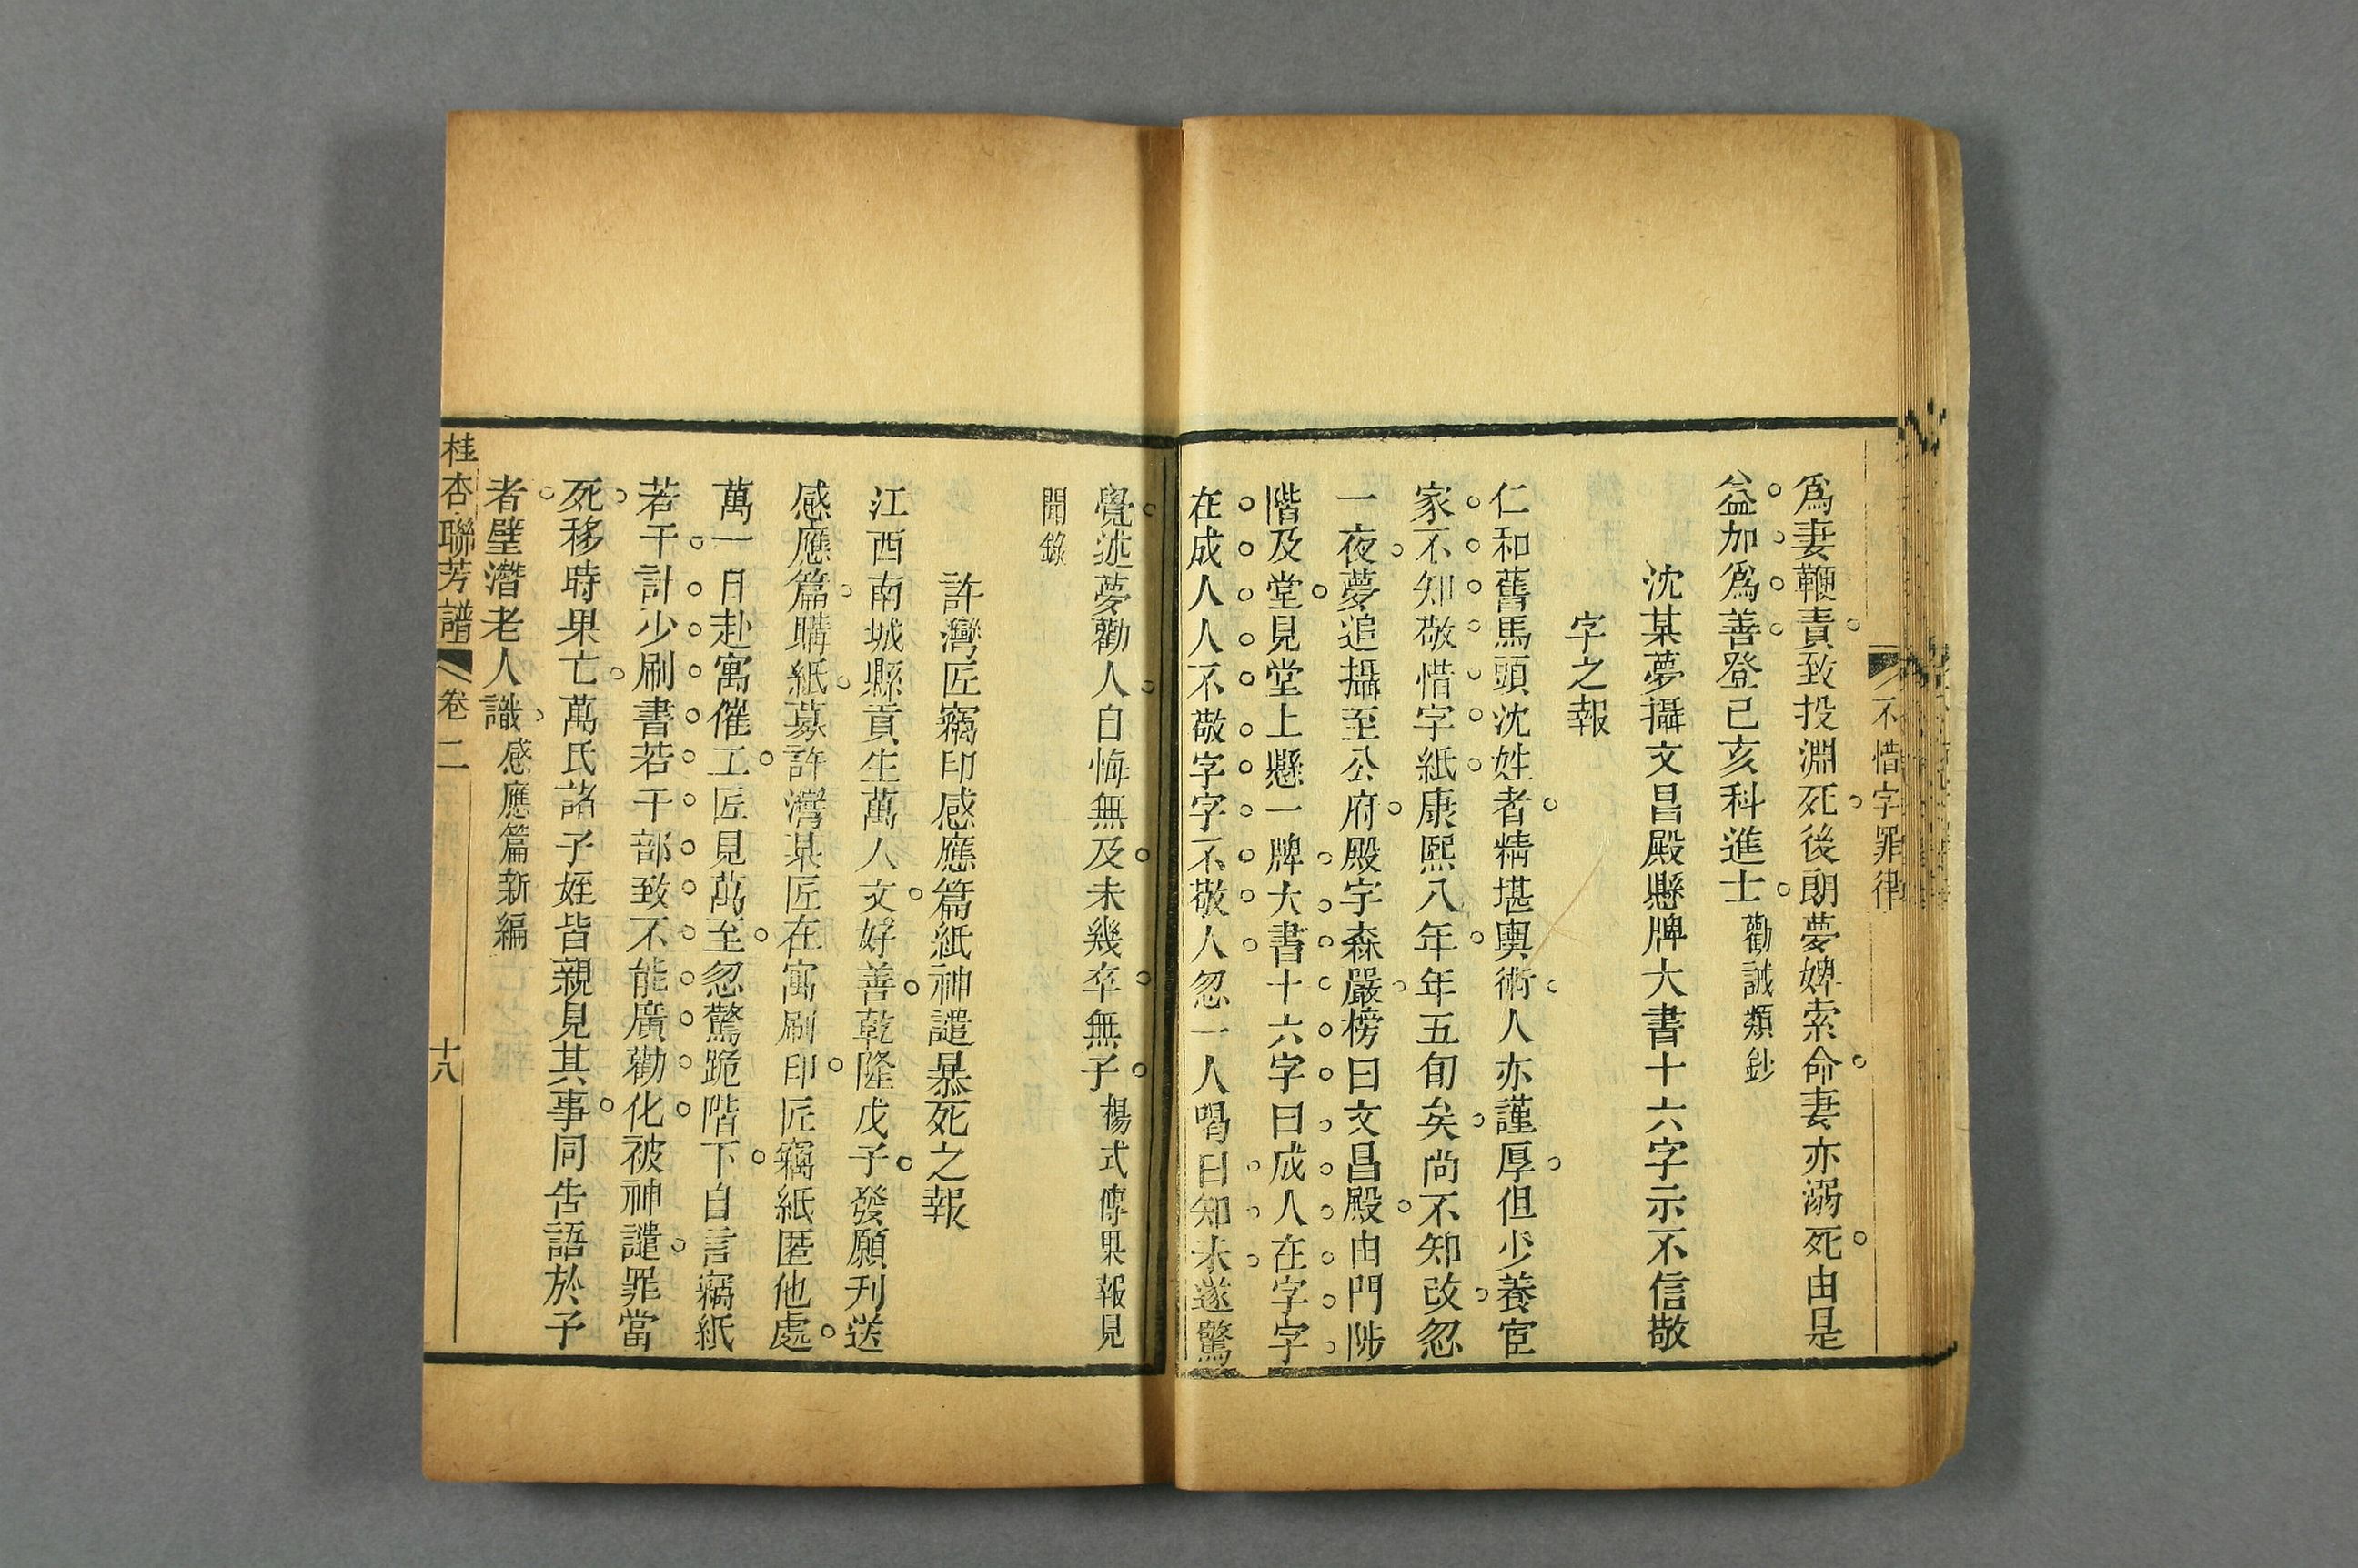 不惜字罪律
爲妻鞭責致投淵死後朗夢婢索命妻亦溺死由是
益加爲善登己亥科進士勸誡類鈔
沈某夢攝文昌殿懸牌大書十六字示不信敬
字之報
仁和舊馬頭沈姓者精堪輿術人亦謹厚但少養宦
家不知敬惜字紙康熙八年年五旬矣尚不知改忽
一夜夢追攝至公府殿宇森嚴榜曰文昌殿由門陟
階及堂見堂上懸一牌大書十六字曰成人在字字
在成人人不敬字字不敬人忽一人喝曰知未遂驚
覺述夢勸人自悔無及未幾卒無子楊式傳果報見
聞錄
許灣匠竊印感應篇紙神譴暴死之報
江西南城縣貢生萬人文好善乾隆戊子發願刊送
感應篇購紙募許灣某匠在寓刷印匠竊紙匿他處
萬一日赴寓催工匠見萬至忽驚跪階下自言竊紙
若干計少刷書若干部致不能廣勸化被神譴罪當
死移時果亡萬氏諸子姪皆親見其事同告語於予
者璧潛老人識感應篇新編
桂杏聯芳譜 卷二 十八